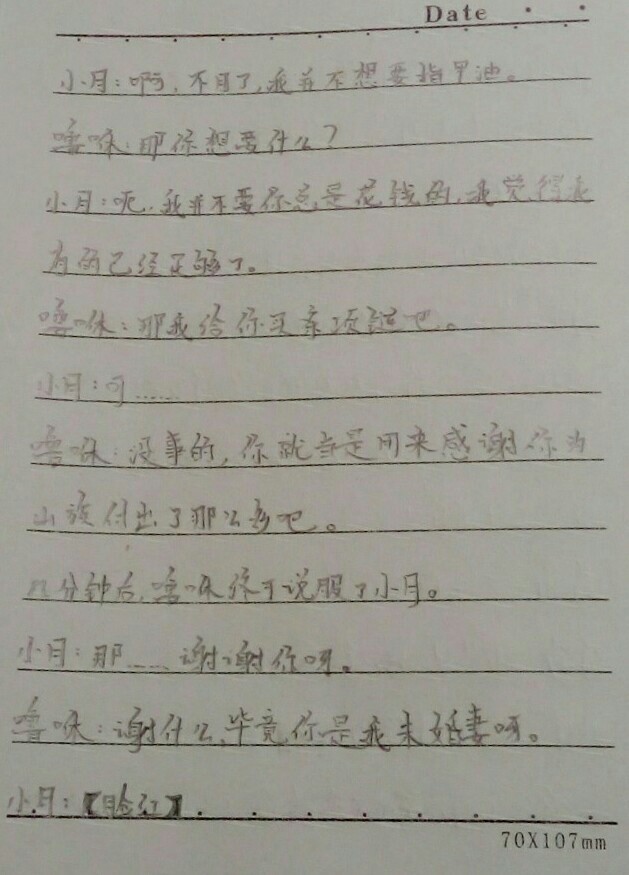 Date
小月：啊，不用了，我并不想要指甲油。
噜咻：那你想要什么？
小月：呃，我并不要你总是花钱的，我觉得我
有的已经足够了。
噜咻：那我给你买条项链吧。
小月：可……
噜咻：没事的，你就当是用来感谢你为
山族付出了那么多吧。
几分钟后，噜咻终于说服了小月。
小月：那……谢谢你呀。
噜咻：谢什么，毕竟你是我未婚妻呀。
小月：【脸红】
70X107mm